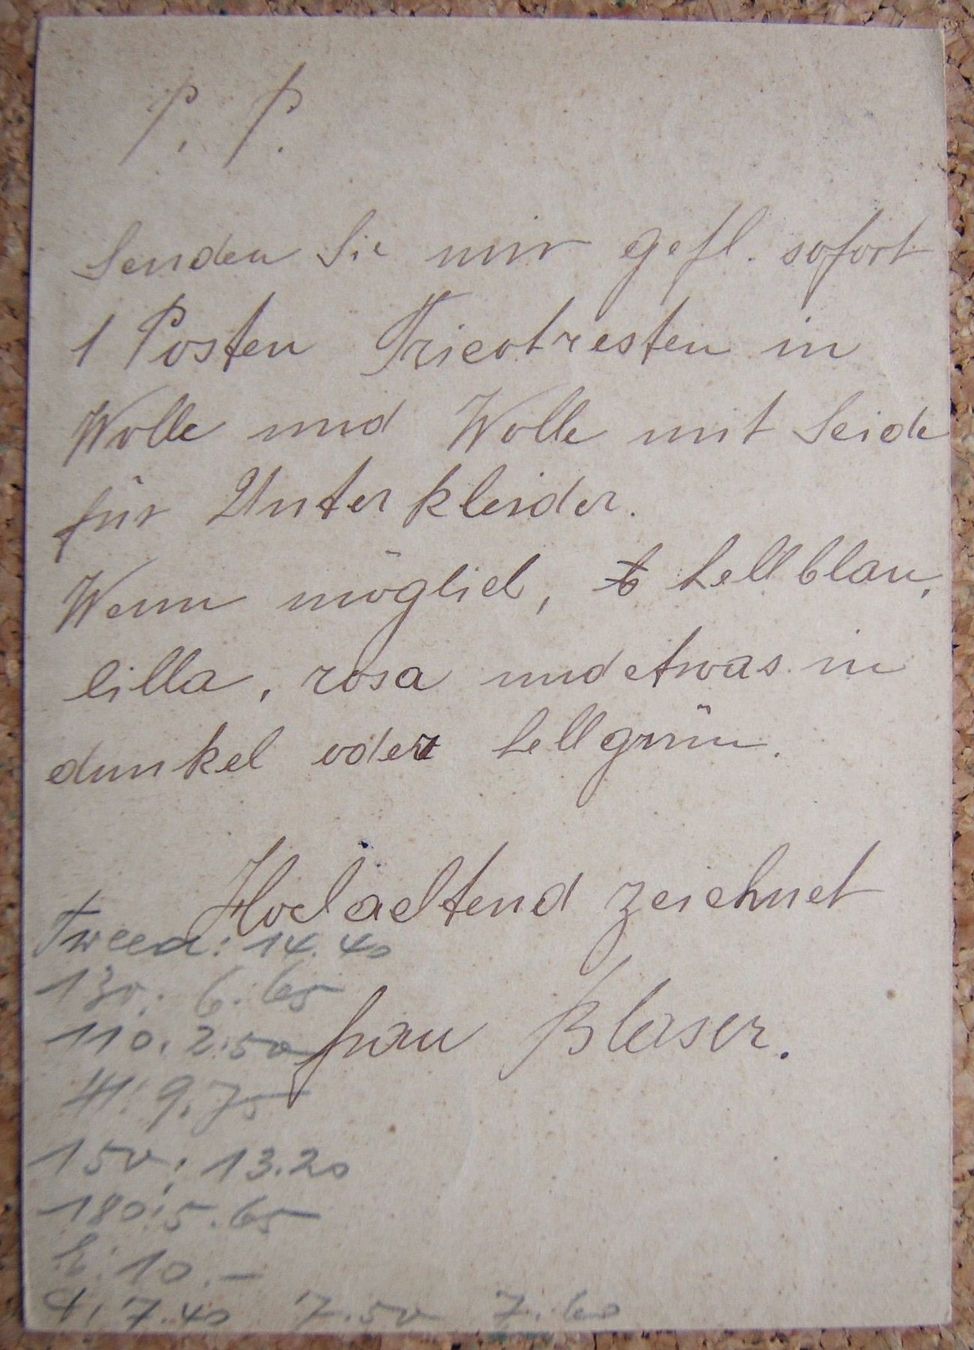 P. P.
Senden Sie mir gefl. sofort
1 Posten Tricotresten in
Wolle und Wolle mit Seide
für Unterkleider.
Wenn möglich, hellblau,
lilla, rosa und etwas in
dunkel oder hellgrün.
Hochachtend zeichnet
Frau Blaser.
Tweed: 14.40
130. 6.65
110. 2.50
9.75
150: 13.20
180: 5.65
10.–
7.40 7.50 7.60